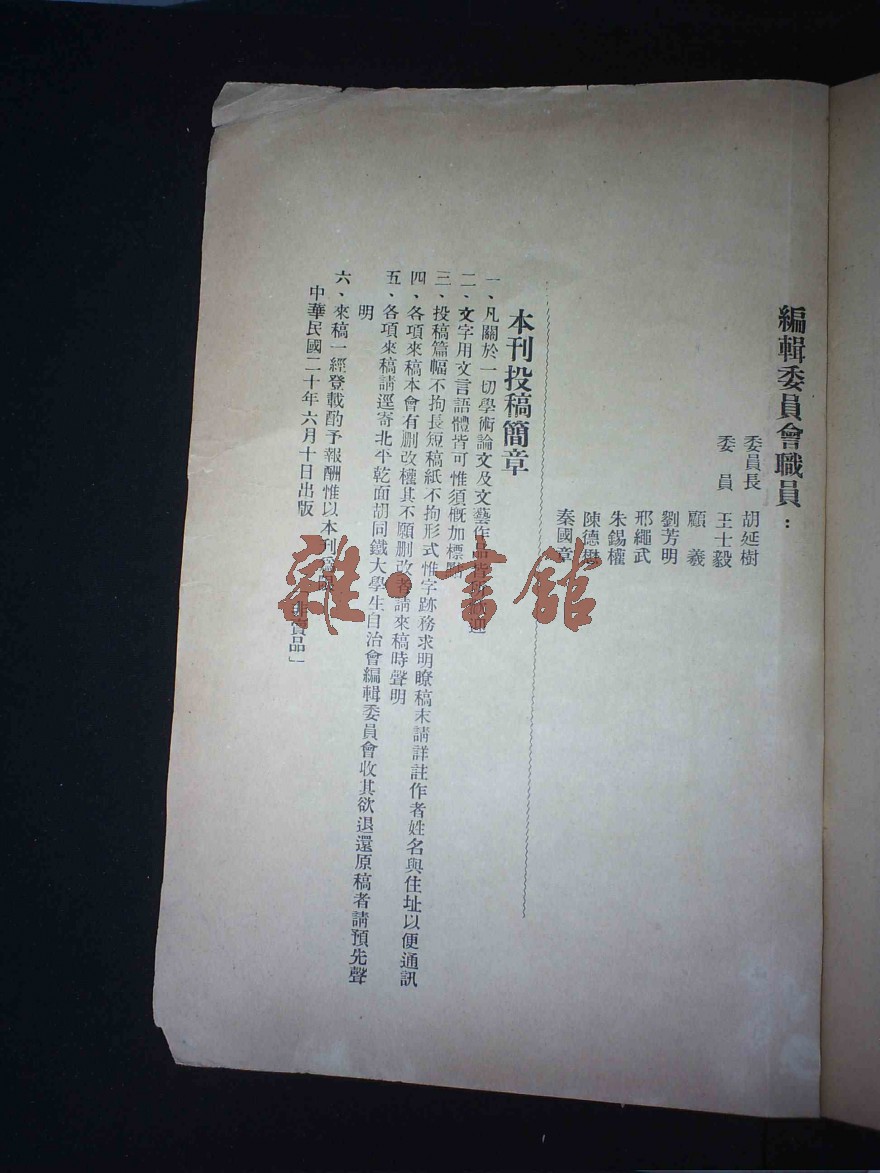 編輯委員會職員：
委員長 胡延樹
委　員 王士毅
顧　羲
劉芳明
邢繩武
朱錫權
陳德懋
秦國章
本刊投稿簡章
一、凡關於一切學術論文及文藝作品皆所歡迎
二、文字用文言語體皆可惟須慨加標點
三、投稿篇幅不拘長短稿紙不拘形式惟字跡務求明瞭稿末請詳註作者姓名與住址以便通訊
四、各項來稿本會有刪改權其不願刪改者請來稿時聲明
五、各項來稿請逕寄北平乾面胡同鐵大學生自治會編輯委員會收其欲退還原稿者請預先聲
明
六、來稿一經登載酌予報酬惟以本刊為限
中華民國二十年六月十日出版 「非賣品」
雜·書館